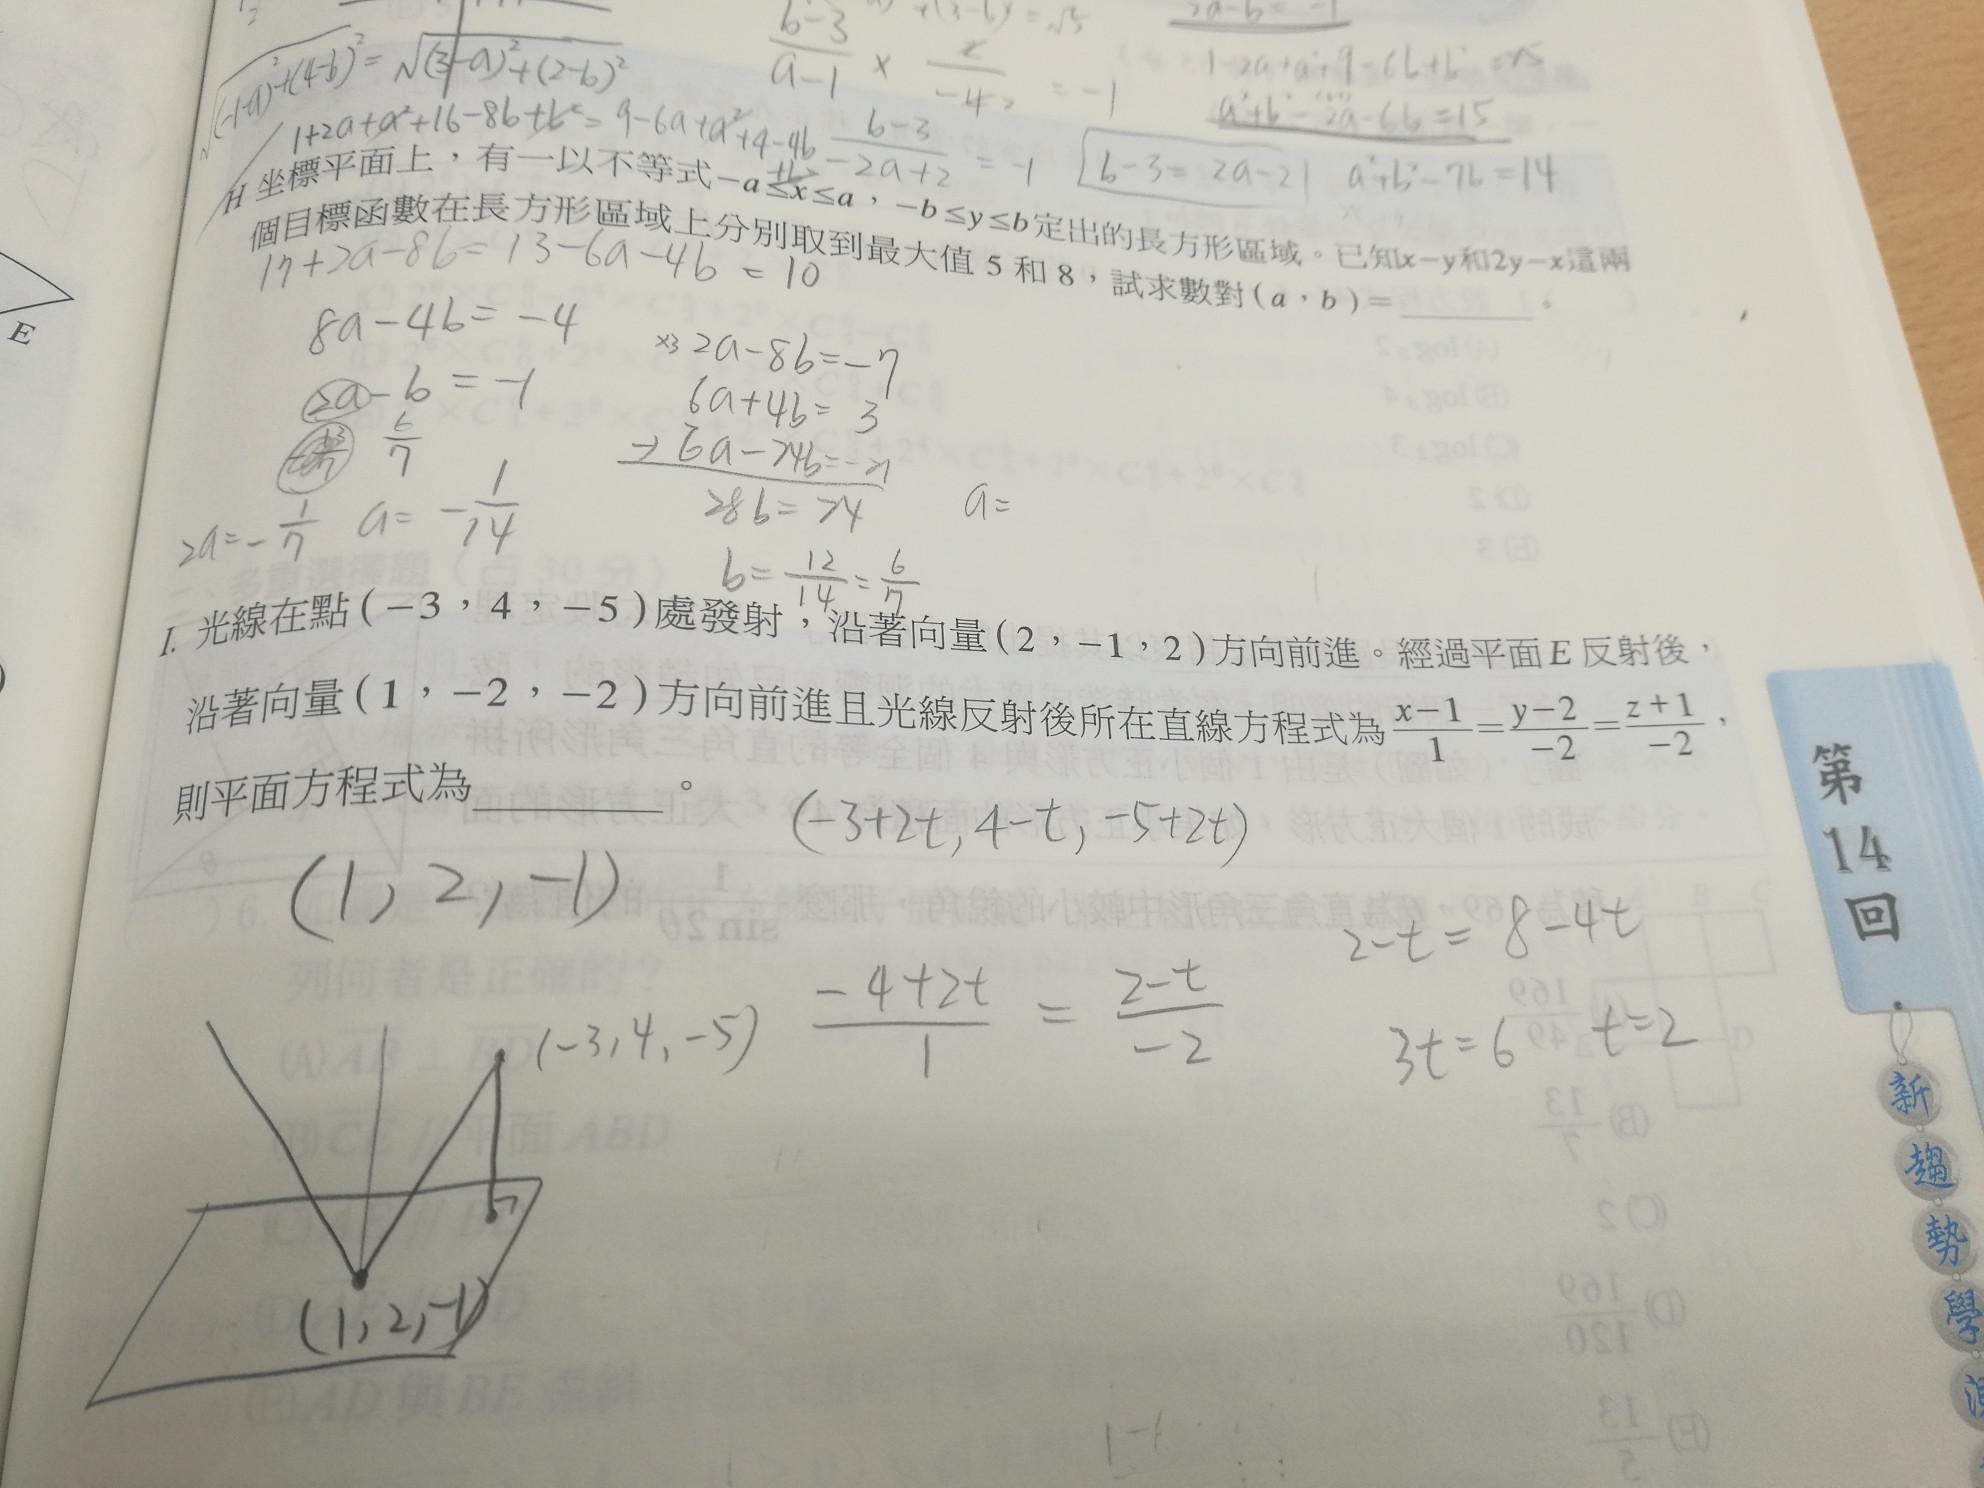 b-3/a-1 × 2/-4 = -1
2a-b=-1
√(-1-a)²+(4-b)² = √(3-a)²+(2-b)²
1+2a+a²+16-8b+b²=9-6a+a²+4-4b+b²
b-3/-2a+2 = -1
b-3=2a-2
a²+b²-2a-6b=15
a²+b²-7b=14
H 坐標平面上，有一以不等式-a≤x≤a，-b≤y≤b定出的長方形區域。已知x-y和2y-x這兩
個目標函數在長方形區域上分別取到最大值 5 和 8，試求數對(a，b)=______。
17+2a-8b=13-6a-4b=10
8a-4b=-4
2a-b=-1
6/7
2a=-1/7 a=-1/14
×3 2a-8b=-7
6a+4b=3
-) 6a-24b=-21
28b=24
a=
b=12/14=6/7
I. 光線在點(-3，4，-5)處發射，沿著向量(2，-1，2)方向前進。經過平面E反射後，
沿著向量(1，-2，-2)方向前進且光線反射後所在直線方程式為x-1/1=y-2/-2=z+1/-2，
則平面方程式為________。
(-3+2t, 4-t, -5+2t)
(1, 2, -1)
2-t=8-4t
-4+2t/1 = 2-t/-2
3t=6 t=2
(-3, 4, -5)
(1, 2, -1)
E
第
14
回
新
趨
勢
學